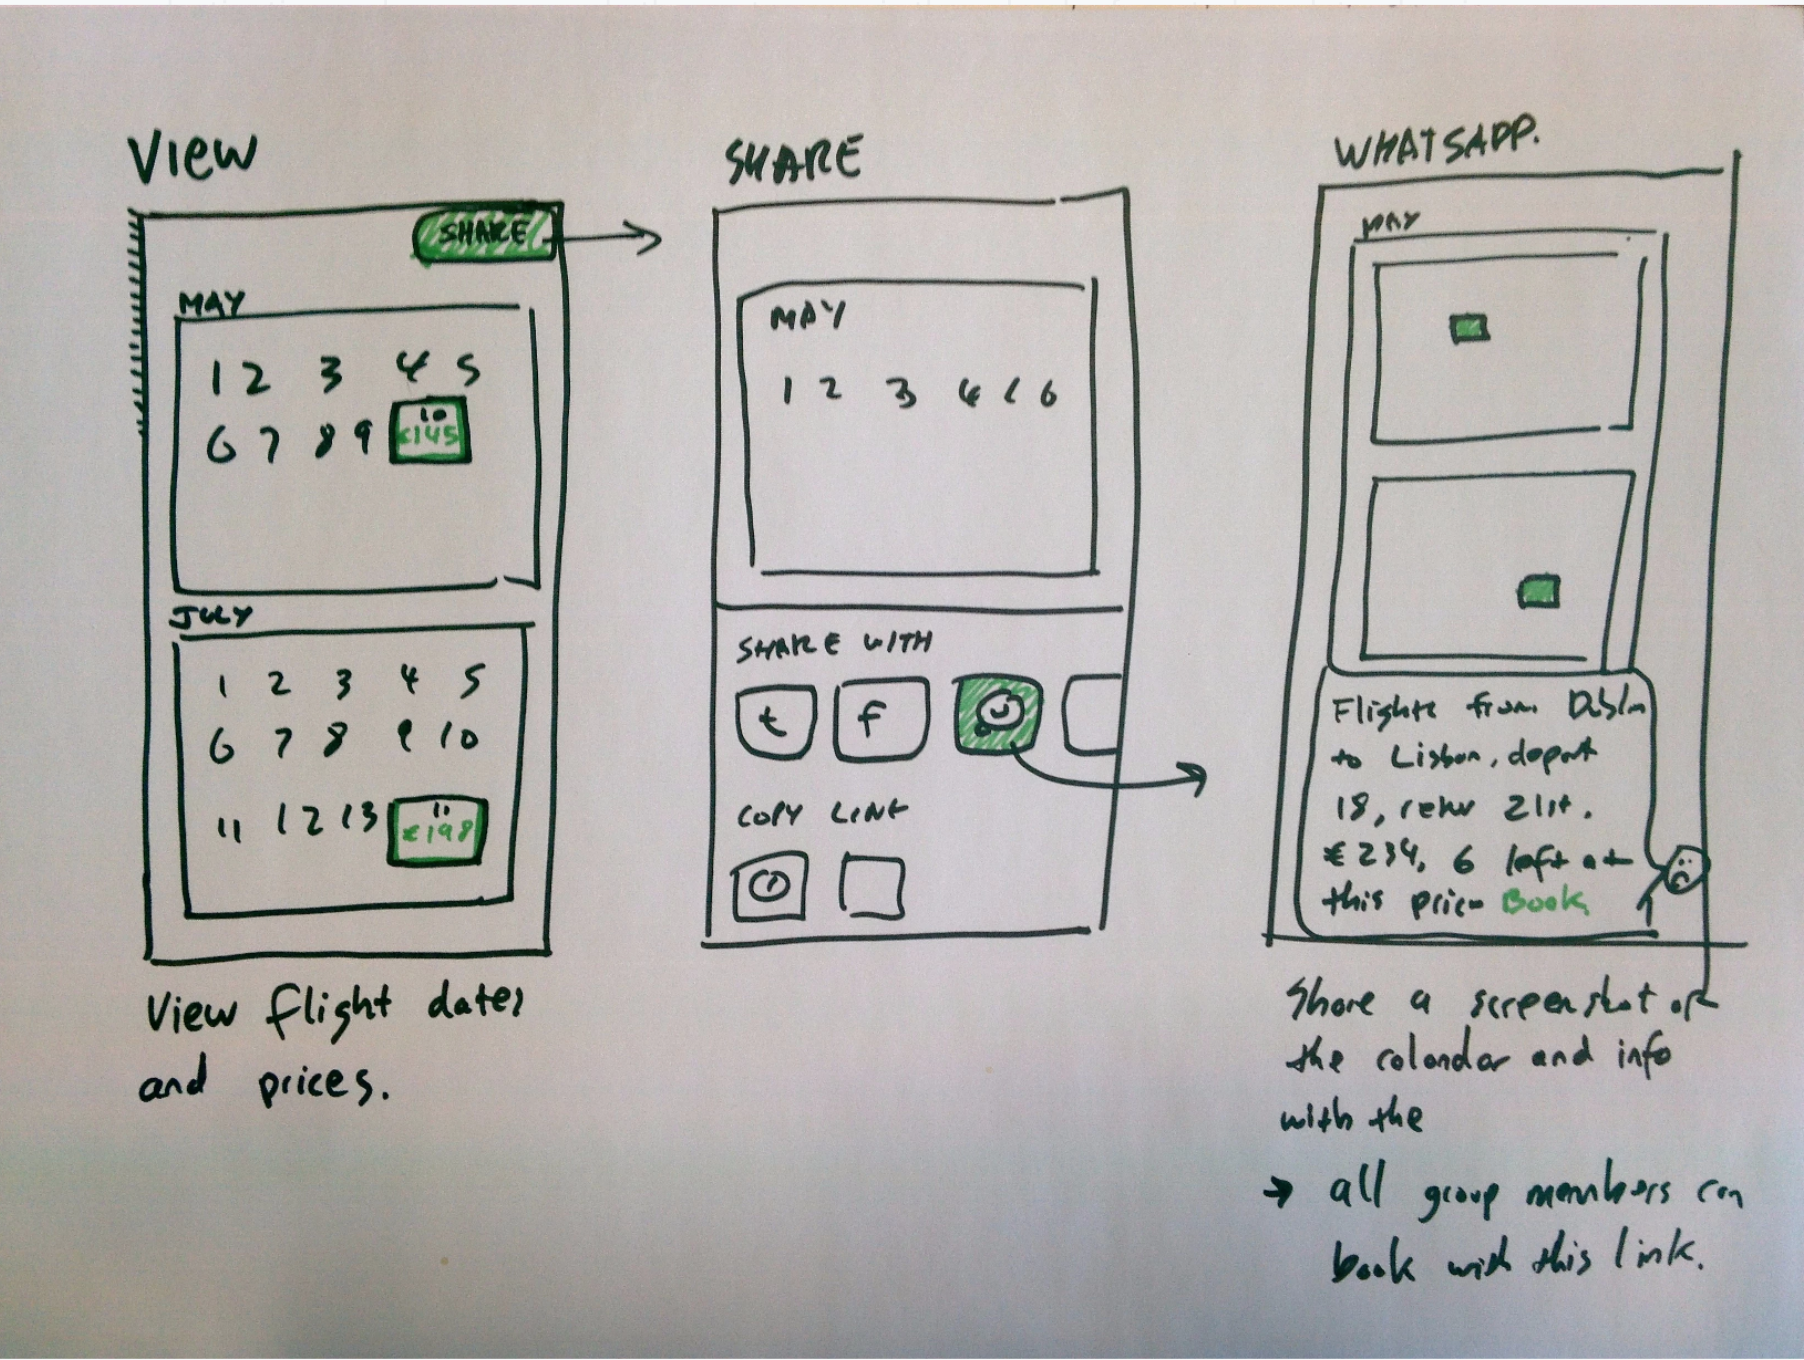 VIEW
SHARE
MAY
1 2 3 4 5
6 7 8 9 10
€145
JULY
1 2 3 4 5
6 7 8 9 10
11 12 13 11
€198
View flight dates
and prices.
SHARE
MAY
1 2 3 4 6
SHARE WITH
t f
COPY LINK
WHATSAPP.
MAY
Flights from Dublin
to Lisbon, depart
18, retur 21st.
€234, 6 left at
this price Book
Share a screenshot of
the calendar and info
with the
→ all group members can
book with this link.